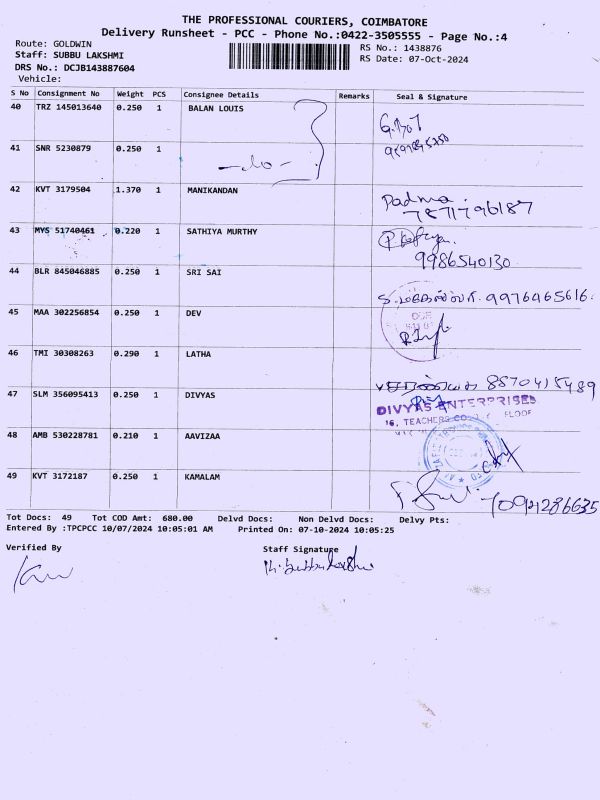 THE PROFESSIONAL COURIERS, COIMBATORE
Delivery Runsheet - PCC - Phone No.:0422-3505555 - Page No.:4
Route: GOLDWIN
Staff: SUBBU LAKSHMI
DRS No.: DCJB143887604
Vehicle:
RS No.: 1438876
RS Date: 07-Oct-2024
S No Consignment No Weight PCS Consignee Details Remarks Seal & Signature
40 TRZ 145013640 0.250 1 BALAN LOUIS
41 SNR 5230879 0.250 1
42 KVT 3179504 1.370 1 MANIKANDAN Padma 7871796187
43 MYS 51740461 0.220 1 SATHIYA MURTHY 9986540130
44 BLR 845046885 0.250 1 SRI SAI 9976465616
45 MAA 302256854 0.250 1 DEV
46 TMI 30308263 0.290 1 LATHA 8870415489
47 SLM 356095413 0.250 1 DIVYAS DIVYAS ENTERPRISES
16, TEACHERS FLOOR
48 AMB 530228781 0.210 1 AAVIZAA
49 KVT 3172187 0.250 1 KAMALAM
Tot Docs: 49 Tot COD Amt: 680.00 Delvd Docs: Non Delvd Docs: Delvy Pts:
Entered By :TPCPCC 10/07/2024 10:05:01 AM Printed On: 07-10-2024 10:05:25
Verified By Staff Signature